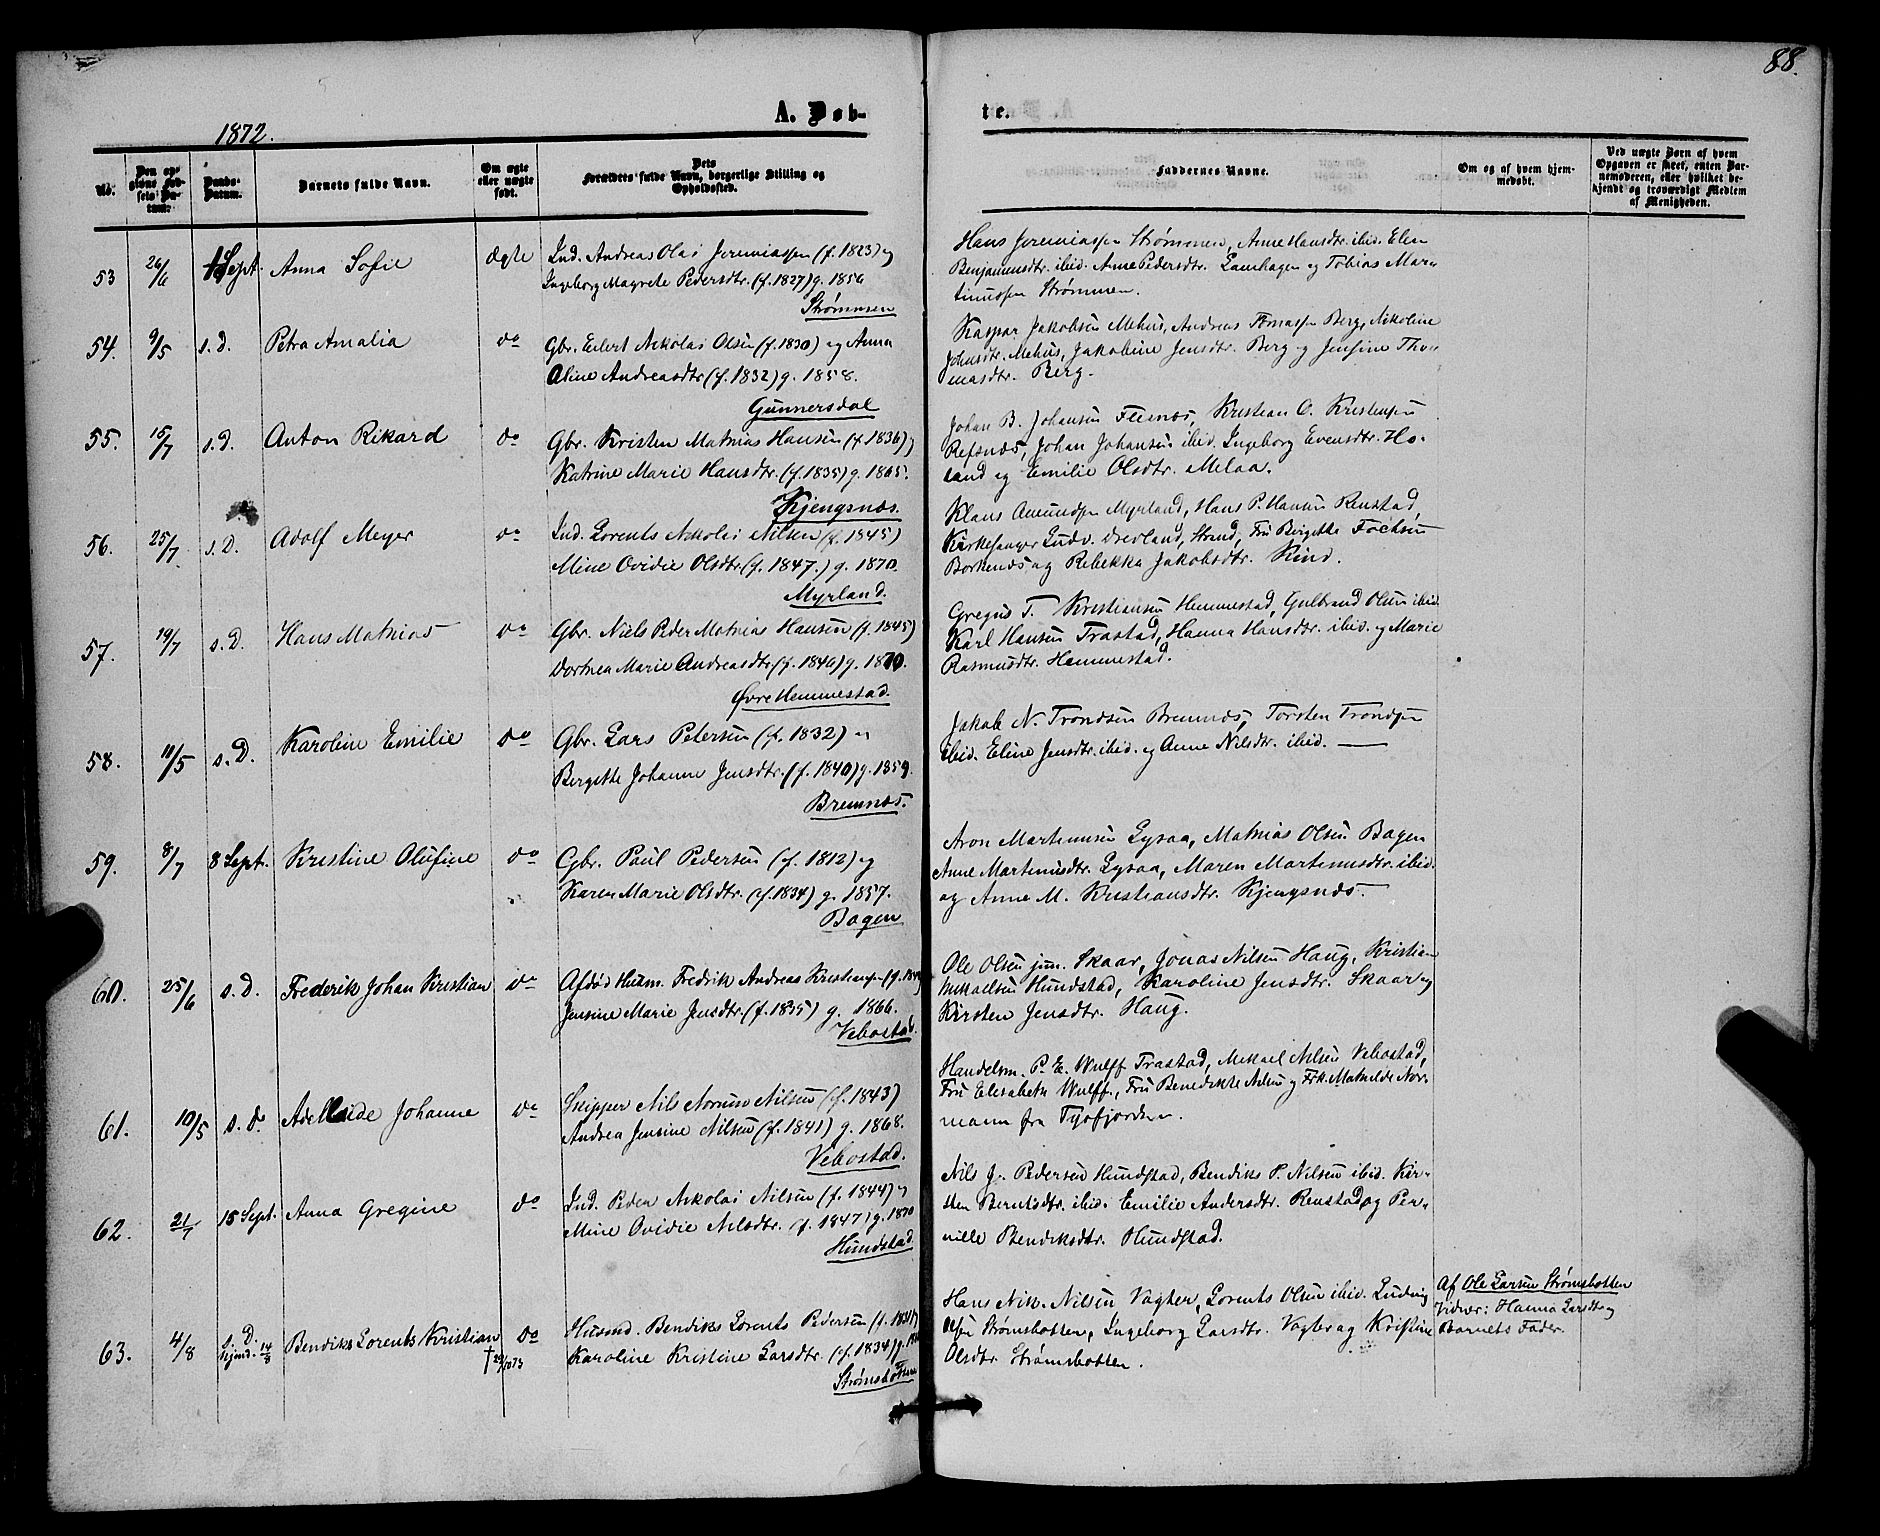 88.
1872.
A. Døb-
te.
No.
Den op-
givne Fød-
sels Da-
tum.
Daabs-
Datum.
Barnets fulde Navn.
Om ægte
eller uægte
født.
Dets
Forældres fulde Navn, borgerlige Stilling og
Opholdssted.
Faddernes Navne.
Om og af hvem hjem-
medøbt.
Ved uægte Børn af hvem
Opgaven er skeet, enten Bar-
nemoderen, eller hvilket be-
kjendt og troværdigt Medlem
af Menigheden.
53 26/6 1 Sept. Anna Sofie ægte Ind. Andreas Olai Jeremiassen (f. 1823) og
Ingeborg Magrete Pedersdtr. (f. 1827) g. 1856
Strømmen
Hans Jeremiassen Strømmen, Anne Hansdtr. ibid. Elen
Benjaminsdtr. ibid. Anne Pedersdtr. Lamhagen og Tobias Mar-
tinussen Strømmen.
54. 9/5 s. D. Petra Amalia do Gbr. Eilert Nikolai Olsen (f. 1830) og Anna
Oline Andreasdtr (f. 1832) g. 1858.
Gunnersdal
Kaspar Jakobsen Mehus, Andreas Tomassen Berg, Nikoline
Johnsdtr. Mehus, Jakobine Jensdtr. Berg og Jensine Tho-
masdtr. Berg.
55. 15/7 s. D. Anton Rikard do Gbr. Kristen Mathias Hansen (f. 1836) og
Katrine Marie Hansdtr. (f. 1835) g. 1865.
Kjengsnæs.
Johan B. Johansen Steinæs, Kristian O. Kristensen
Refsnæs, Johan Johansen ibid. Ingeborg Evensdtr. Ho-
land og Emilie Olsdtr. Melaa.
56. 25/7 s. D. Adolf Meyer do Ind. Lorents Nikolai Nilsen (f. 1845)
Mine Ovidie Olsdtr. (f. 1847.) g. 1870.
Myrland.
Klaus Amundsen Myrland, Hans P. Hansen Renstad,
Kirkesanger Ludv. Drevland, Strand, Fru Bergitte Fochsen
Borkenæs og Rebekka Jakobsdtr. Rind.
57. 19/7 s. D. Hans Mathias do Gbr. Niels Peder Mathias Hansen (f. 1845)
Dorthea Marie Andreasdtr (f. 1846) g. 1870.
Øvre Hemmestad.
Gregus T. Kristiansen Hemmestad, Gulbrand Olsen ibid.
Karl Hansen Trastad, Hanna Hansdtr. ibid. og Marie
Rasmusdtr. Hemmestad.
58. 11/5 s. D. Karoline Emilie do Gbr. Lars Petersen (f. 1832) og
Bergitte Johanne Jensdtr. (f. 1840) g. 1859.
Bremnæs.
Jakob N. Trondsen Bremnæs, Torsten Trondsen
ibid. Eline Jensdtr. ibid. og Anne Nilsdtr. ibid.
59. 8/7 8 Sept. Kristine Olufine do Gbr. Paul Pedersen (f. 1812) og
Karen Marie Olsdtr. (f. 1834) g. 1857.
Bogen
Aron Martinusen Lysaa, Mathias Olsen Bogen
Anne Martinusdtr. Lysaa, Maren Martinusdtr. ibid.
og Anne M. Kristiansdtr. Kjengsnæs.
60. 25/6 s. D. Frederik Johan Kristian do Afdød Husm. Fredrik Andreas Kristiansen
Jensine Marie Jensdtr. (f. 1835) g. 1866.
Vebostad.
Ole Olsen jun. Skaar, Jonas Nilsen Haug, Kristian
Mikkelsen Hundstad, Karoline Jensdtr. Skaar og
Kirsten Jensdtr. Haug.
61. 10/5 s. D. Adellaide Johanne do Skipper Nils Norum Nilsen (f. 1843)
Andrea Jensine Nilsen (f. 1841) g. 1868.
Vebostad.
Handelsm. P. E. Wulff Trastad, Mikael Nilsen Vebostad,
Fru Elisabeth Wulff, Fru Benedikte Nilsen og Frk. Mathilde Nor-
mann fra Tysfjorden.
62. 21/7 15 Sept. Anna Gregine do Ind. Peder Nikolai Nilsen (f. 1844) og
Mine Ovidie Nilsdtr. (f. 1847) g. 1870
Hundstad.
Nils J. Pedersen Hundstad, Bendiks P. Nilsen ibid. Kir-
sten Berntsdtr. ibid. Emilie Andersdtr. Renstad og Per-
nille Bendiksdtr. Hundstad.
63. 4/8 D. Hjemd. 14/8 Bendiks Lorents Kristian do Husmd. Bendiks Lorents Pedersen
Karoline Kristine Larsdtr. (f. 1834) g.
Strømsbotten
Hans Nik. Nilsen Vagter, Lorents Olsen ibid. Ludvig
Olsen Strømsbotten, Ingeborg Larsdtr. Vagter og Kristine
Olsdtr. Strømsbotten.
Af Ole Larsen Strømsbotten
Vidner: Hanna Larsdtr og
Barnets Fader.